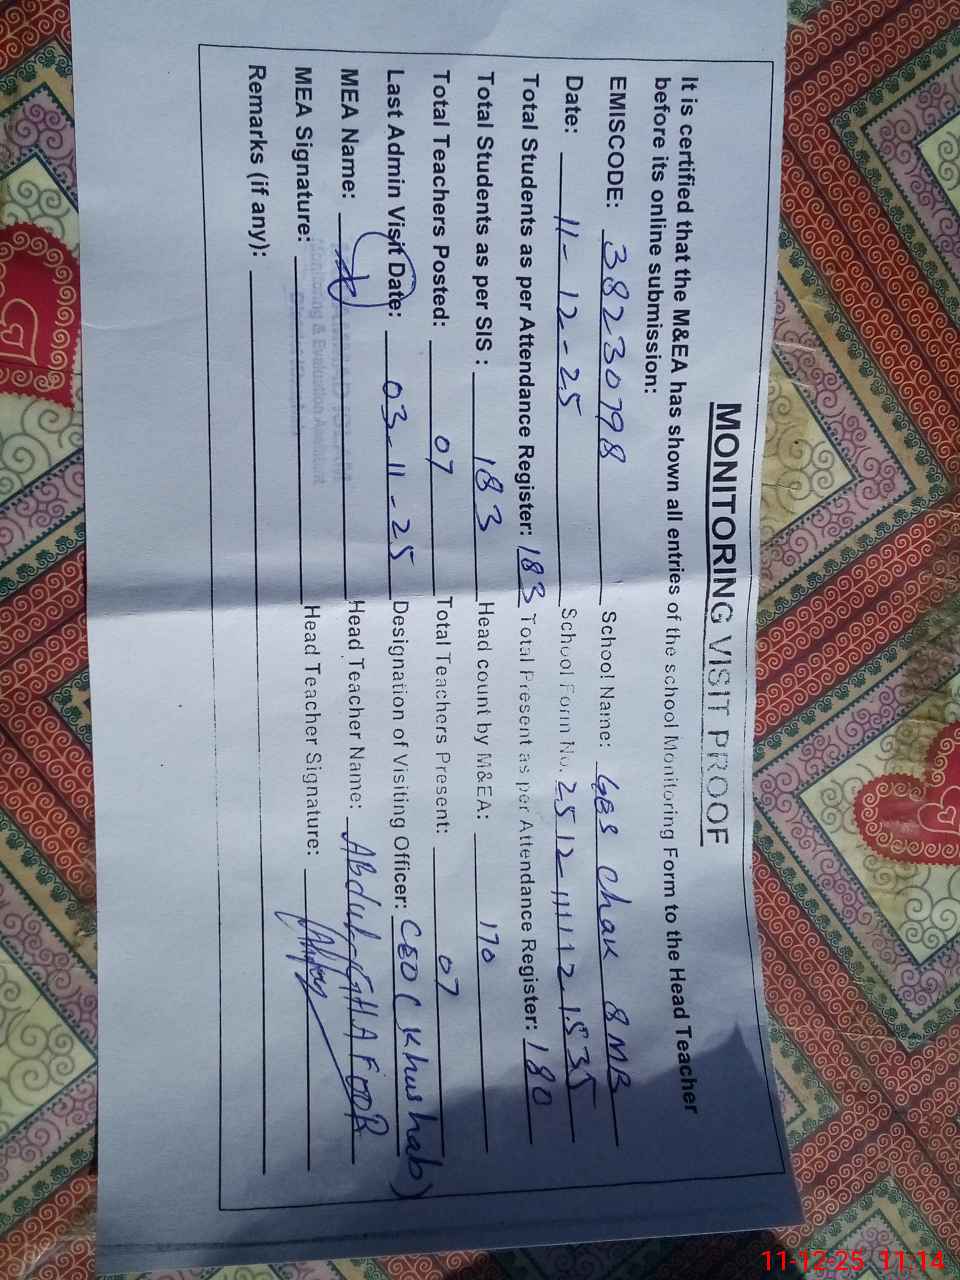 MONITORING VISIT PROOF
It is certified that the M&EA has shown all entries of the school Monitoring Form to the Head Teacher
before its online submission:
EMISCODE: 38230798 School Name: GES Chak 8MB
Date: 11-12-25 School Form No. 2512-11112
Total Students as per Attendance Register: 183 Total Present as per Attendance Register: 180
Total Students as per SIS : 183 Head count by M&EA: 170
Total Teachers Posted: 07 Total Teachers Present: 07
Last Admin Visit Date: 03-11-25 Designation of Visiting Officer: CEO (Khushab)
MEA Name: Head Teacher Name: ABdul GHAFOOR
MEA Signature: Head Teacher Signature:
Monitoring & Evaluation Assistant
Remarks (if any):
11-12-25 11:14